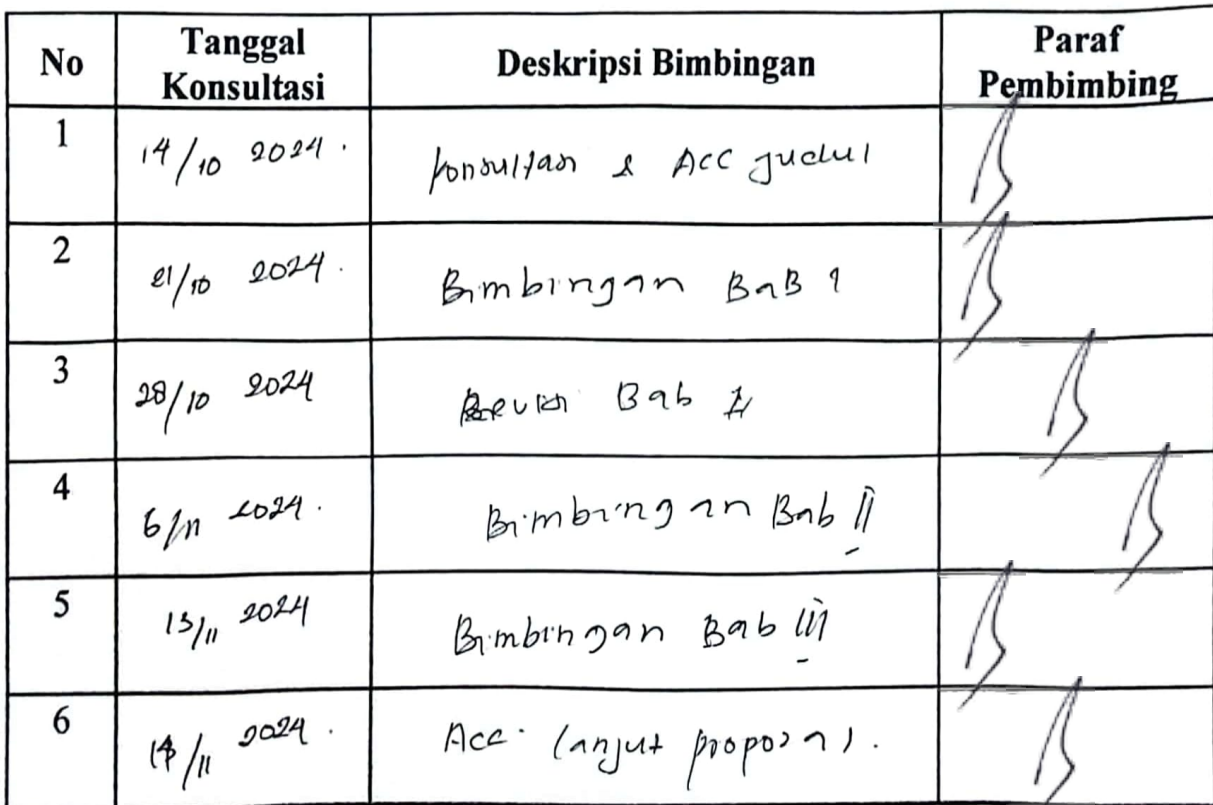 No
Tanggal
Konsultasi
Deskripsi Bimbingan
Paraf
Pembimbing
1
14/10 2024.
Konsultasi & ACC judul
2
21/10 2024.
Bimbingan BaB 1
3
28/10 2024
Revisi Bab
4
6/11 2024.
Bimbingan Bab II
5
13/11 2024
Bimbingan Bab III
6
/11 2024.
Acc. Lanjut proposal.